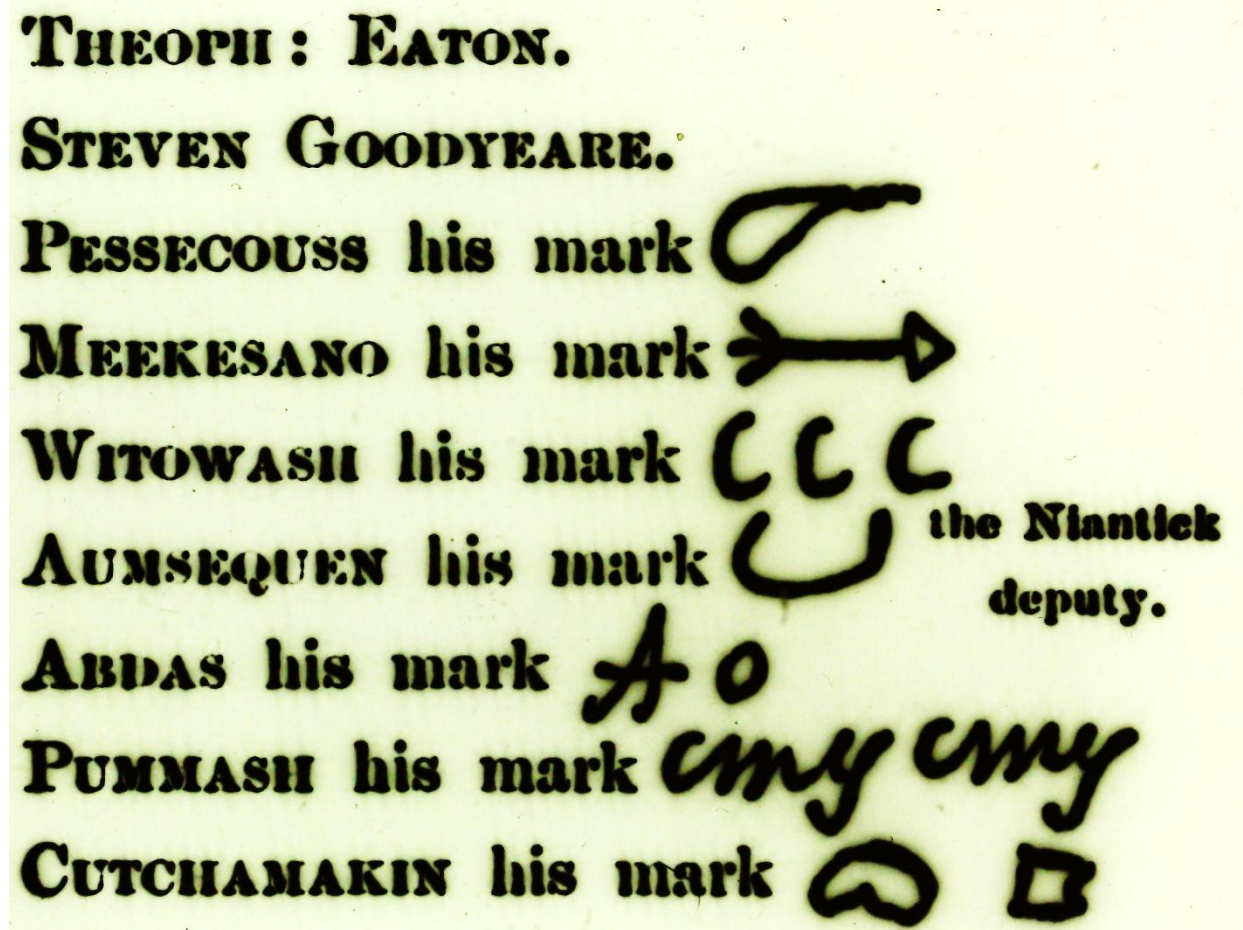 THEOPH: EATON.
STEVEN GOODYEARE.
PESSECOUSS his mark
MEEKESANO his mark
WITOWASH his mark C C C
AUMSEQUEN his mark the Niantick
deputy.
ABDAS his mark A o
PUMMASH his mark cmy cmy
CUTCHAMAKIN his mark